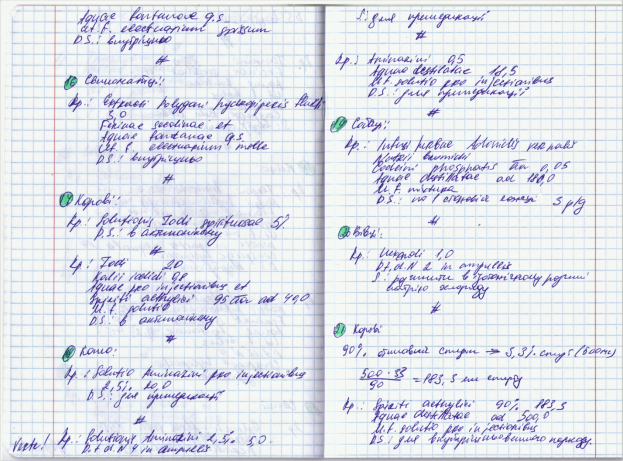 Aquae fontanae q.s
M.f. electuarium spissum
D.S.: внутрішньо
#
16 Свиноматці:
Rp.: Extracti Polygoni hydropiperis fluidi
5,0
Farinae secalinae et
Aquae fontanae q.s
M.f. electuarium molle
D.S.: внутрішньо
#
17 Корові:
Rp.: Solutionis Iodi spirituosae 5%
D.S.: в антисептику
#
Rp.: Iodi 2,0
Kalii iodidi 0,8
Aquae pro injectionibus et
Spiriti aethylici 95 ad 40,0
M.f. solutio
D.S.: в антисептику
#
18 Коню:
Rp.: Solutio Aminazini pro injectionibus
2,5% 20,0
D.S.: для премедикації
#
Verte!
Rp.: Solutionis Aminazini 2,5% 5,0
D.t.d N 4 in ampullis
S: для премедикації
#
Rp.: Aminazini 0,5
Aquae destillatae 19,5
M.f. solutio pro injectionibus
D.S.: для премедикації
#
19 Собаці:
Rp.: Infusi herbae Adonidis vernalis
Natrii bromidi
Codeini phosphatis āā 0,05
Aquae destillatae ad 180,0
M.f. mixtura
D.S.: по 1 столовій ложці 3 р/д
#
20 Вівці:
Rp.: 1,0
D.t.d N 2 in ampullis
S: в ізотонічному розчині
натрію хлориду
#
21 Корові
90% етиловий спирт → 33% спирт (500ml)
500 · 33
90
= 183,3 мл спирту
Rp.: Spiriti aethylici 90% 183,3
Aquae destillatae ad 500,0
M.f. solutio pro injectionibus
D.S.: для внутрішньовенного наркозу.